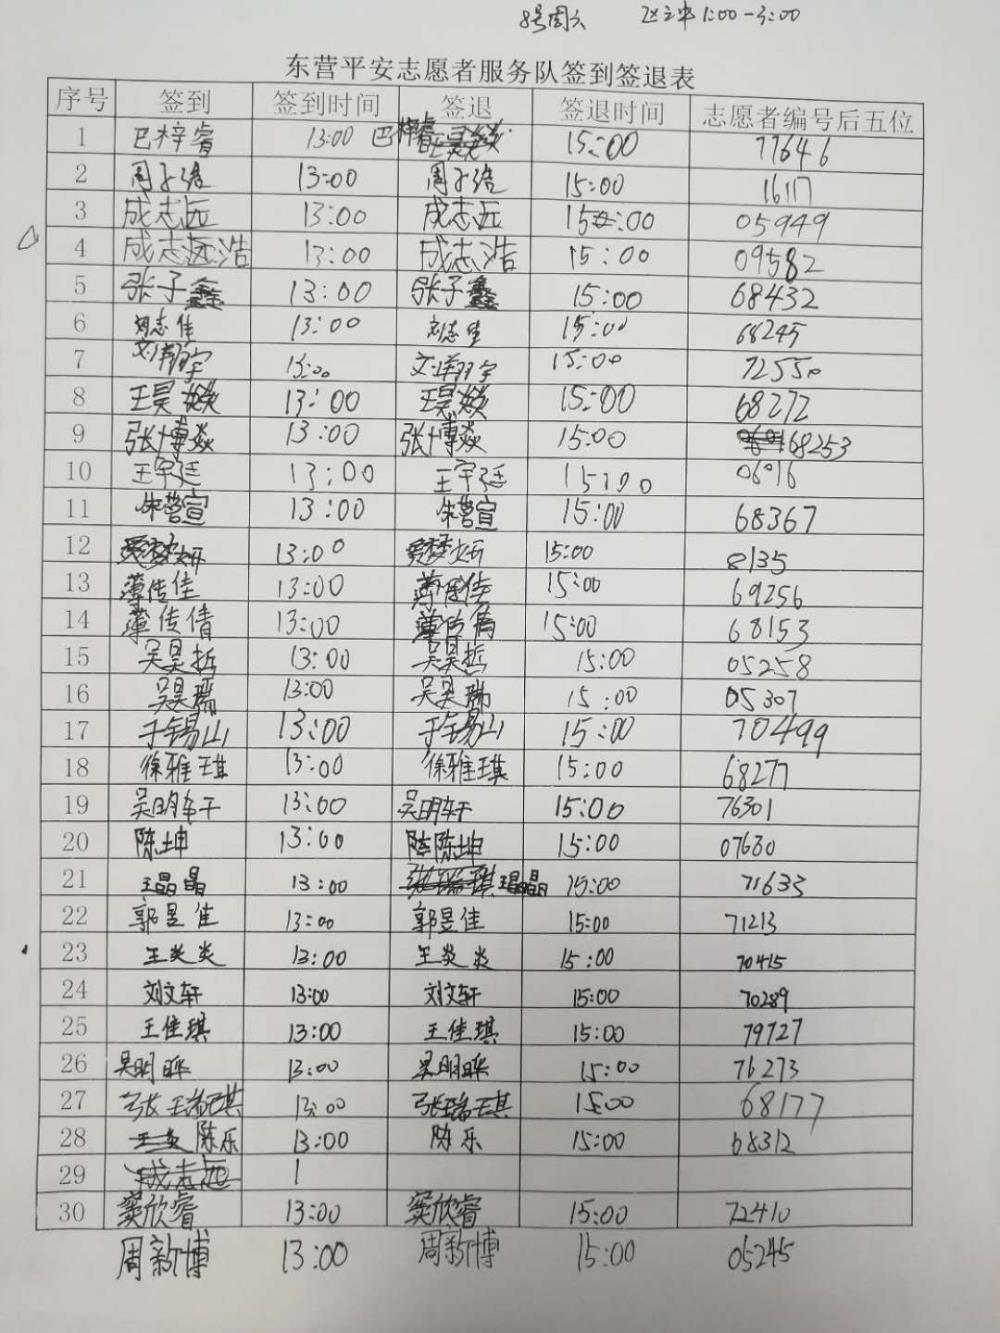 8号周六 1:00-3:00
东营平安志愿者服务队签到签退表
序号 签到 签到时间 签退 签退时间 志愿者编号后五位
1 巴梓睿 13:00 巴梓睿 15:00 77646
2 周子涵 13:00 周子涵 15:00 16117
3 成志远 13:00 成志远 15:00 05949
4 成志浩 13:00 成志浩 15:00 09582
5 张子鑫 13:00 张子鑫 15:00 68432
6 刘志佳 13:00 刘志佳 15:00 68245
7 文翔宇 13:00 文翔宇 15:00 72550
8 王昊焱 13:00 王昊焱 15:00 68272
9 张博焱 13:00 张博焱 15:00 68253
10 王宇廷 13:00 王宇廷 15:00 06916
11 朱营宣 13:00 朱营宣 15:00 68367
12 13:00 15:00 8135
13 薄传佳 13:00 薄传佳 15:00 69256
14 薄传倩 13:00 薄传倩 15:00 68153
15 吴昊哲 13:00 吴昊哲 15:00 05258
16 吴昊瑞 13:00 吴昊瑞 15:00 05307
17 于锡山 13:00 于锡山 15:00 70499
18 徐雅琪 13:00 徐雅琪 15:00 68277
19 吴明轩 13:00 吴明轩 15:00 76301
20 陈坤 13:00 陈坤 15:00 07630
21 王晶晶 13:00 王晶晶 15:00 71633
22 郭昱佳 13:00 郭昱佳 15:00 71213
23 王炎炎 13:00 王炎炎 15:00 70415
24 刘文轩 13:00 刘文轩 15:00 70289
25 王佳琪 13:00 王佳琪 15:00 79727
26 吴明晔 13:00 吴明晔 15:00 76273
27 张瑞琪 13:00 张瑞琪 15:00 68177
28 陈乐 13:00 陈乐 15:00 68312
29 成志远 1
30 窦欣睿 13:00 窦欣睿 15:00 72410
周新博 13:00 周新博 15:00 05245